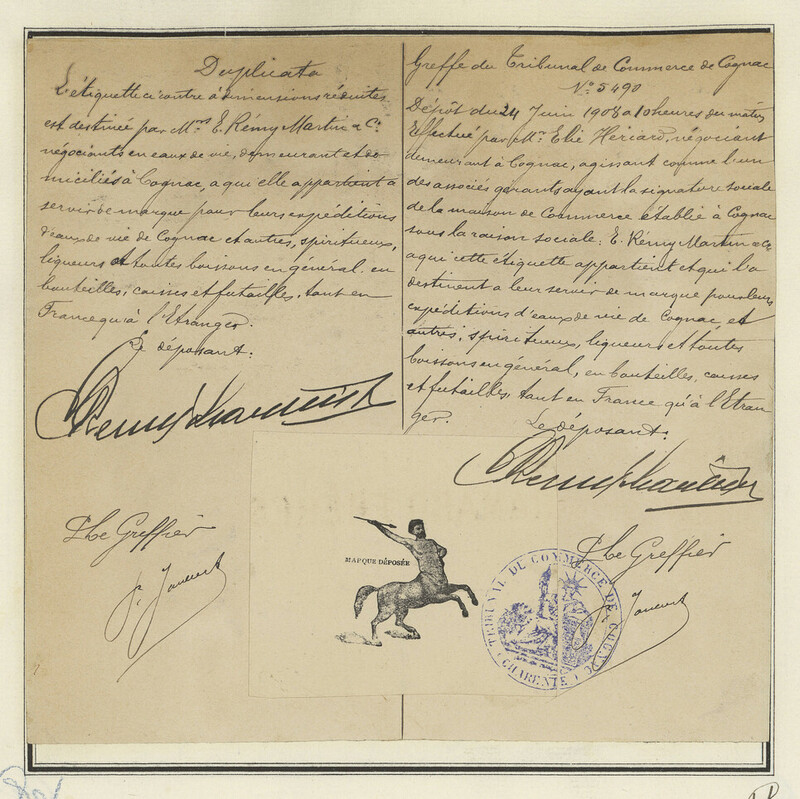 Duplicata
L'étiquette ci contre à dimensions réduites
est destinée par Mrs E. Rémy Martin & Cie
négociants en eaux de vie, demeurant et do-
miciliés à Cognac, a qui elle appartient a
servir de marque pour leurs expéditions
d'eaux de vie de Cognac et autres, spiritueux,
liqueurs et toutes boissons en général, en
bouteilles, caisses et futailles, tant en
France qu'à l'Etranger.
Le déposant:
Remy Martin
Le Greffier
Greffe du Tribunal de Commerce de Cognac
No 5490
Dépôt du 24 Juin 1908 à 10 heures du matin
Effectué par Mr Elie Hériard, négociant
demeurant à Cognac, agissant comme l'un
des associés gérants ayant la signature sociale
de la maison de Commerce établie à Cognac
sous la raison sociale: E. Rémy Martin & Cie
a qui cette étiquette appartient et qui la
destinent a leur servir de marque pour leurs
expéditions d'eaux de vie de Cognac, et
autres, spiritueux, liqueurs et toutes
boissons en général, en bouteilles, caisses
et futailles, tant en France qu'à l'Etran
ger.
Le déposant:
Remy Martin
Le Greffier
MARQUE DÉPOSÉE
TRIBUNAL DE COMMERCE DE COGNAC
(CHARENTE)